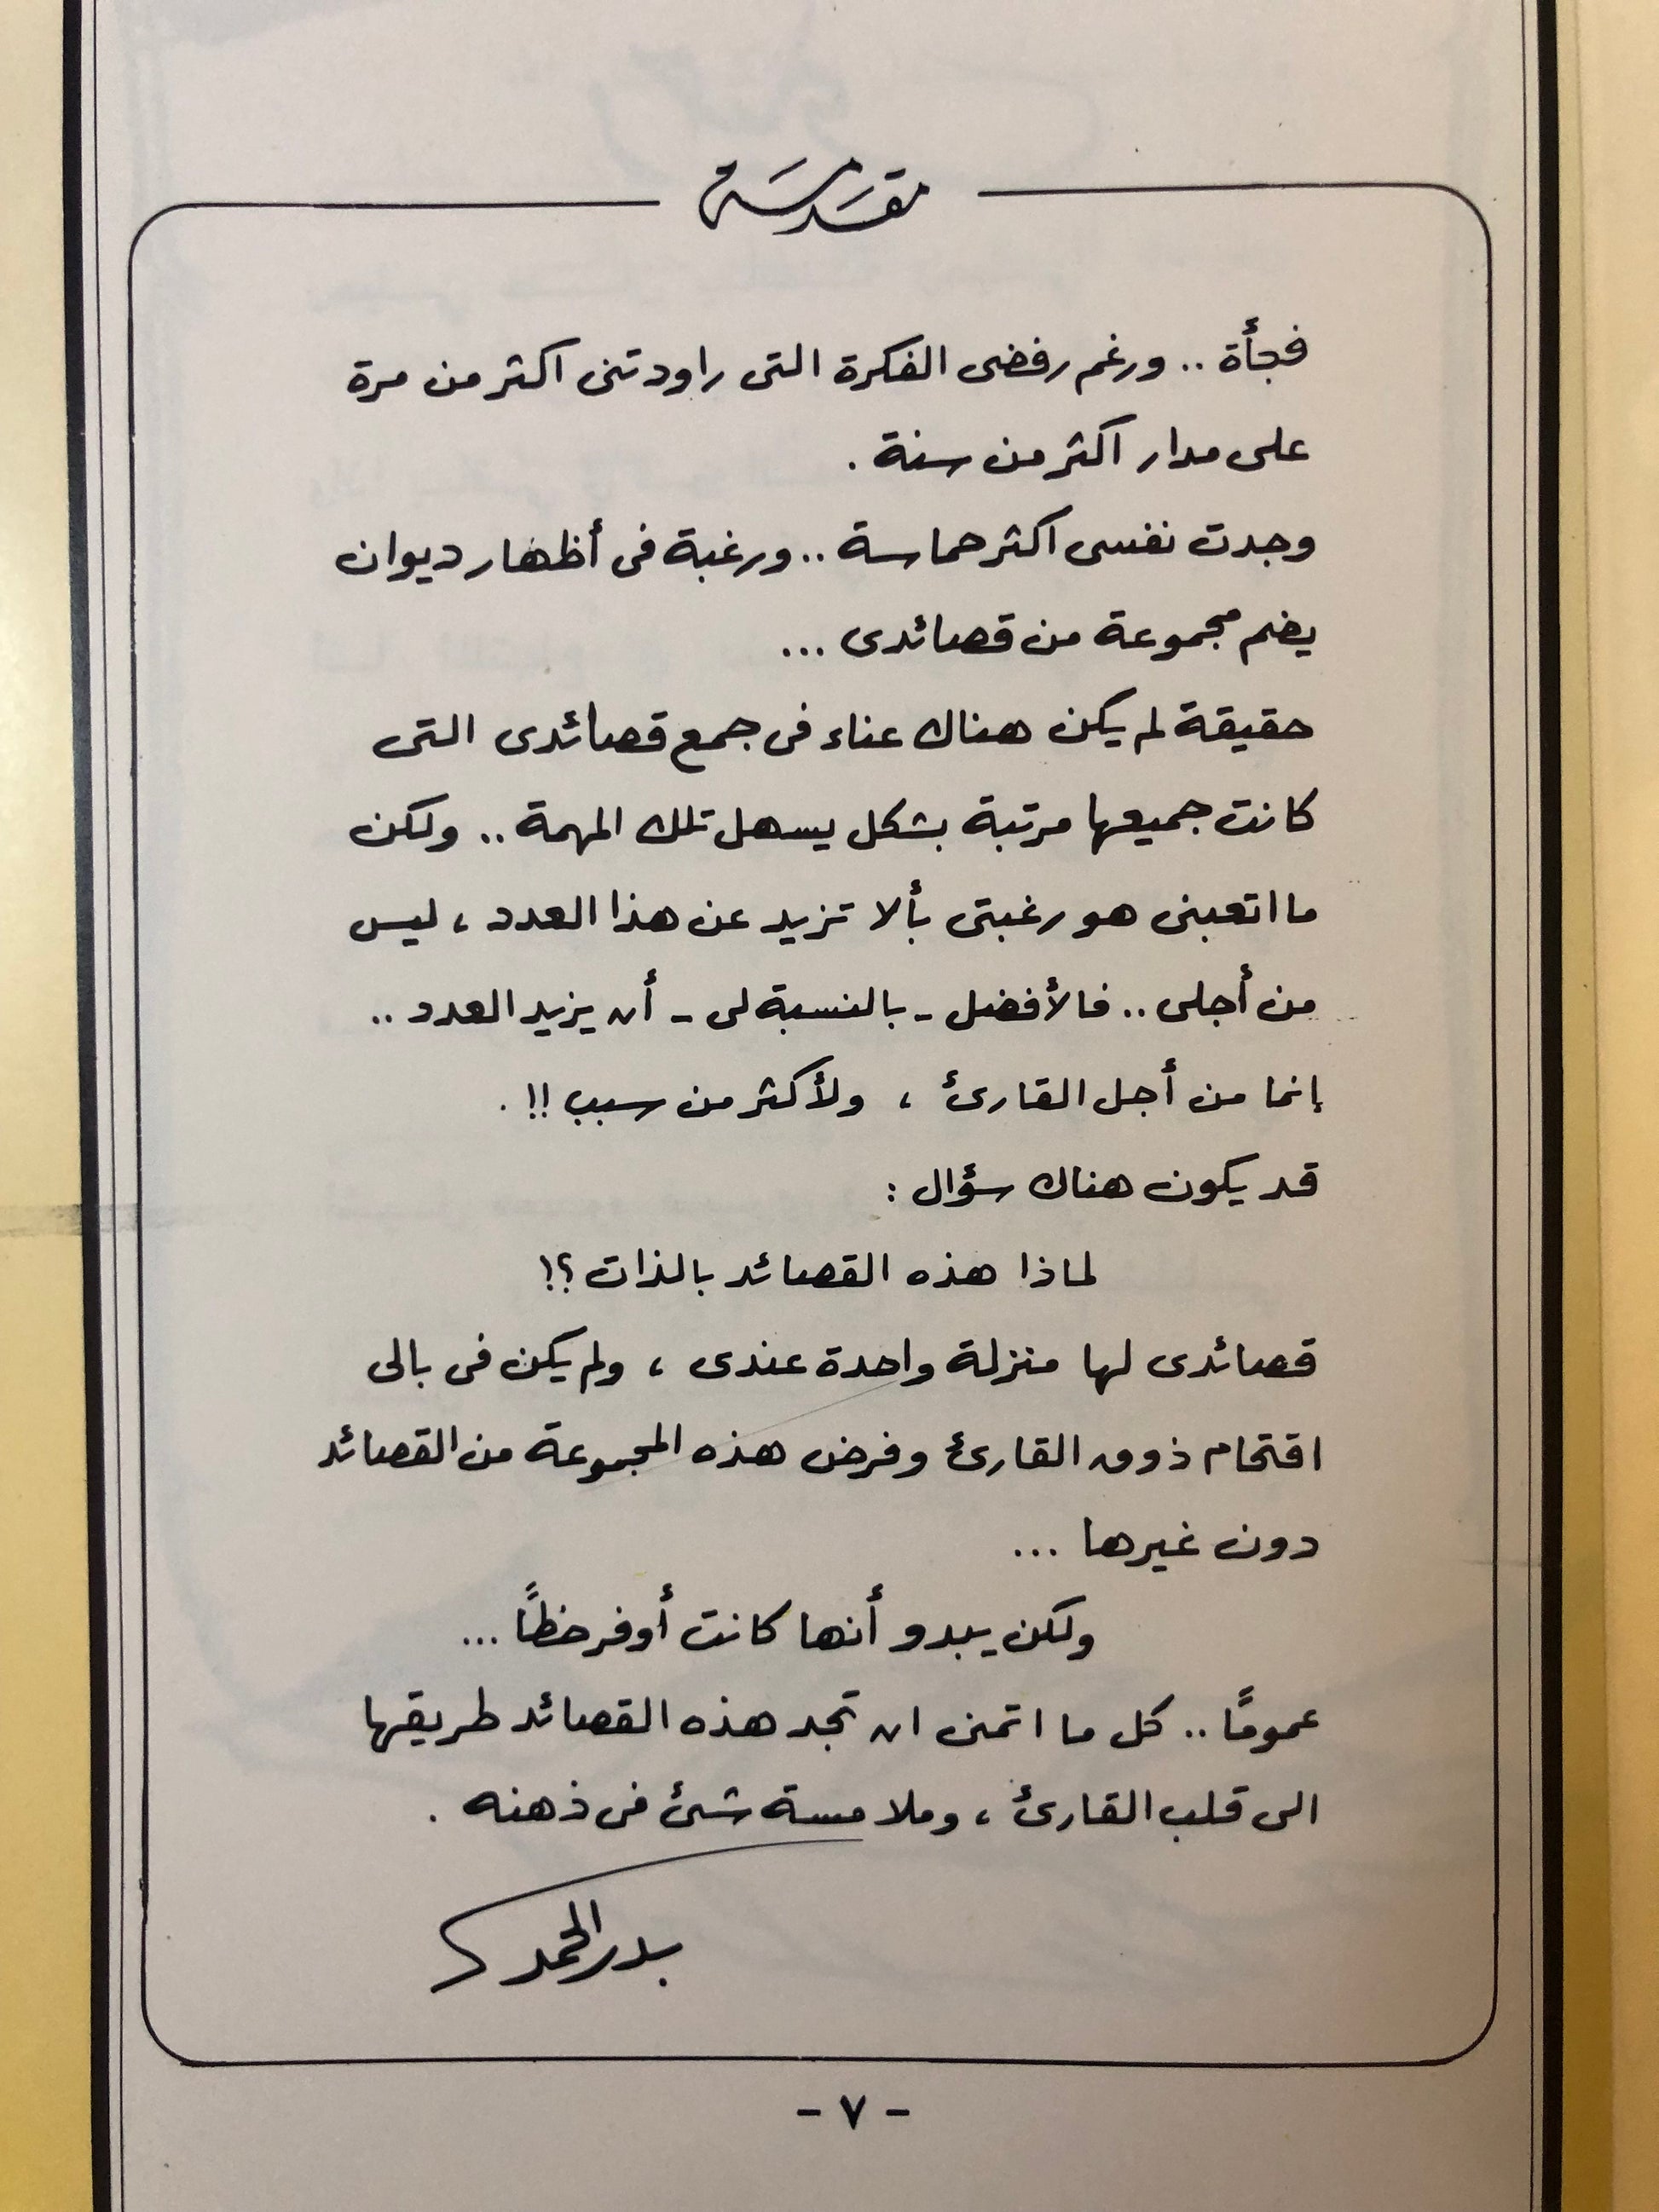 مقدمة
فجأة .. ورغم رفضى الفكرة التى راودتنى اكثر من مرة
على مدار اكثر من سنة .
وجدت نفسى اكثر حماسة .. ورغبة فى أظهار ديوان
يضم مجموعة من قصائدى ...
حقيقة لم يكن هناك عناء فى جمع قصائدى التى
كانت جميعها مرتبة بشكل يسهل تلك المهمة .. ولكن
ما اتعبنى هو رغبتى بألا تزيد عن هذا العدد ، ليس
من أجلى .. فالأفضل - بالنسبة لى - أن يزيد العدد ..
إنما من أجل القارئ ، ولأكثر من سبب !! .
قد يكون هناك سؤال :
لماذا هذه القصائد بالذات ؟!
قصائدى لها منزلة واحدة عندى ، ولم يكن فى بالى
اقتحام ذوق القارئ وفرض هذه المجموعة من القصائد
دون غيرها ...
ولكن يبدو أنها كانت أوفر حظاً ...
عمومًا .. كل ما اتمنى ان تجد هذه القصائد طريقها
الى قلب القارئ ، وملامسة شئ فى ذهنه .
بدر الحمد
- ٧ -